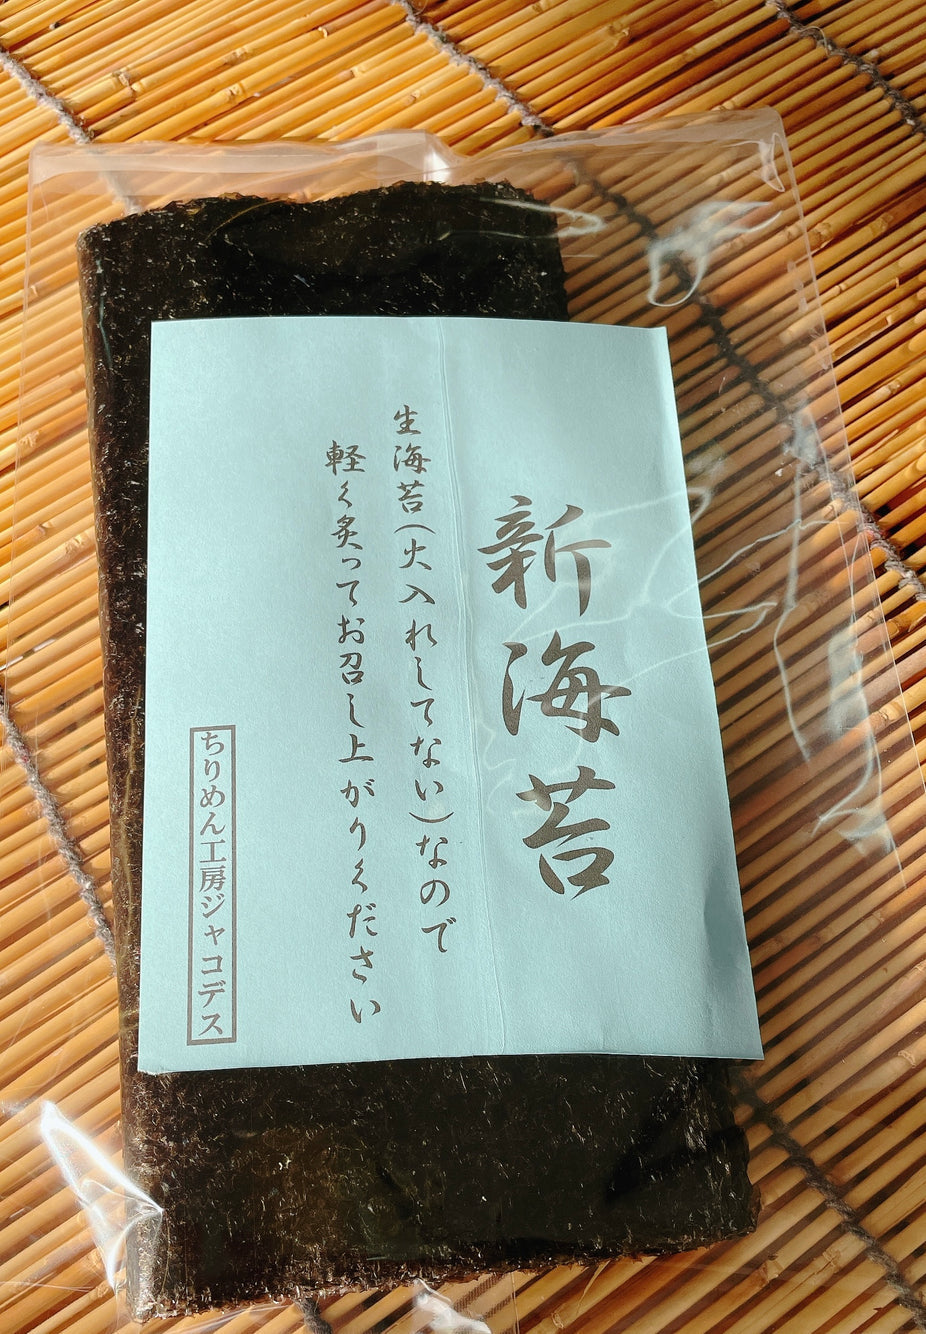 新海苔
生海苔(火入れしてない)なので
軽く炙ってお召し上がりください
ちりめん工房ジャコデス